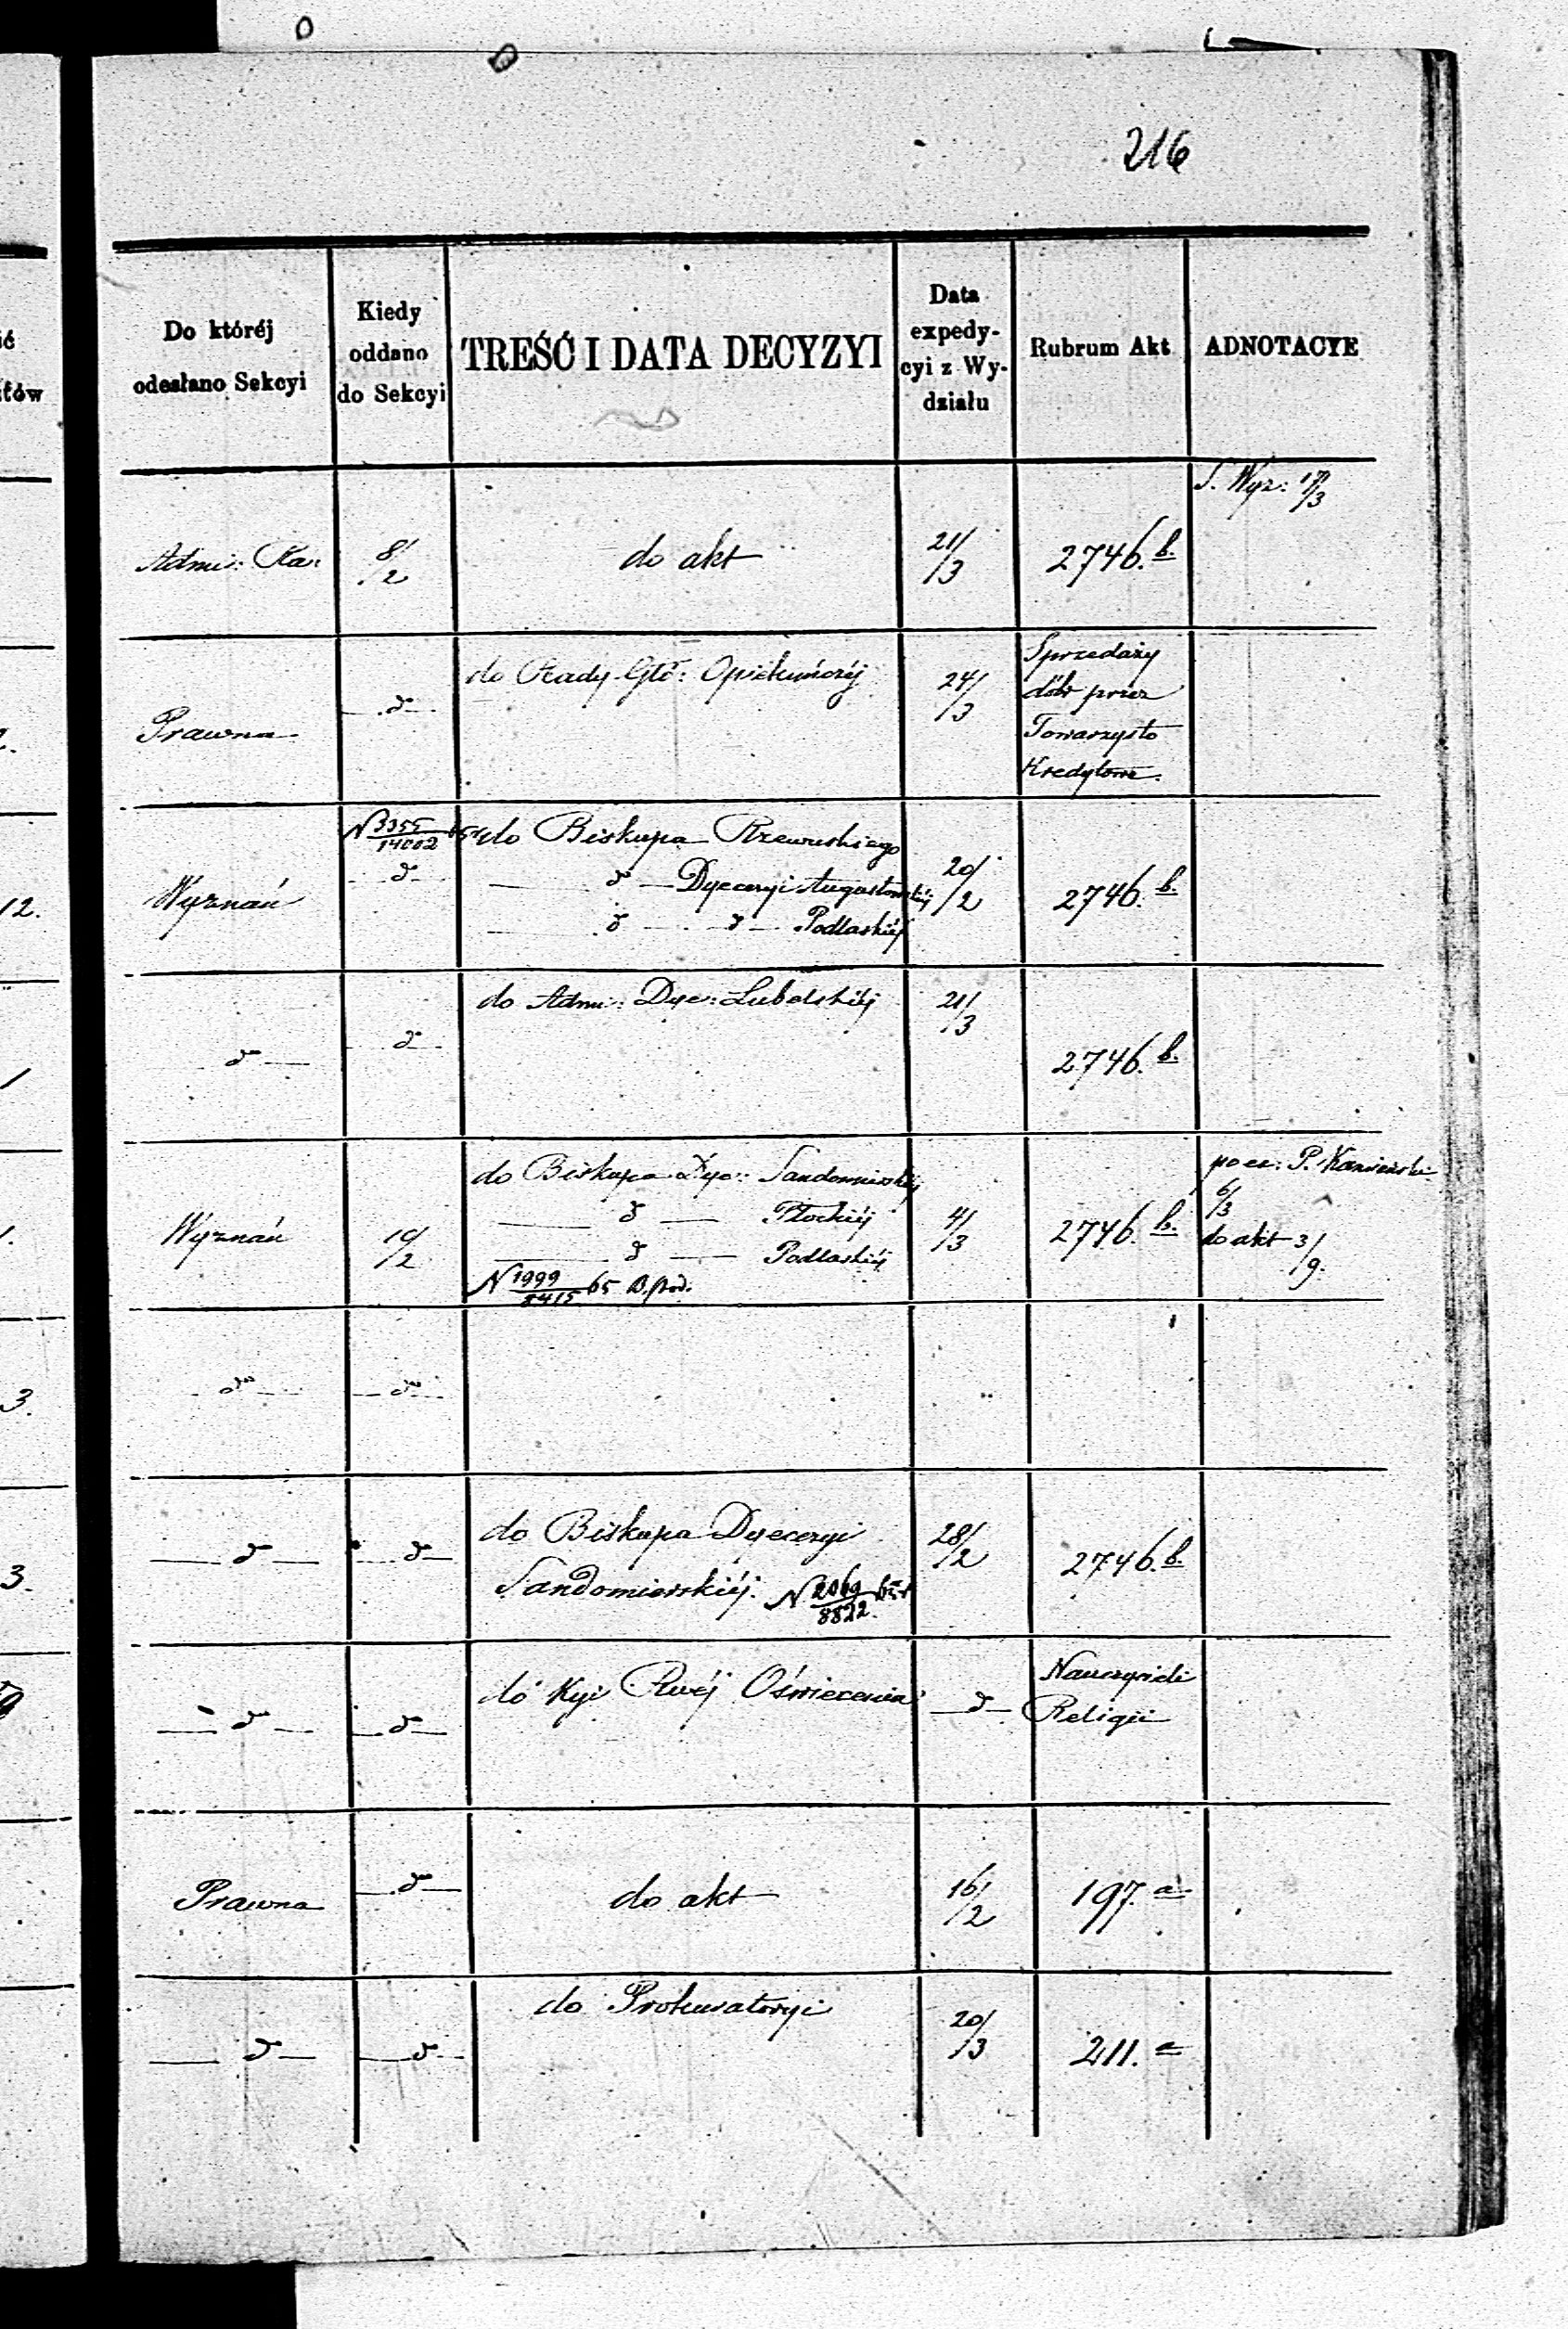 216
Do któréj
odesłano Sekcyi
Kiedy
oddano
do Sekcyi
TREŚĆ I DATA DECYZYI
Data
expedy-
cyi z Wy-
działu
Rubrum Akt
ADNOTACYE
Admi: Ka:
8/2
do akt
21/3
2746.b.
S. Wyz: 17/3
Prawna
d°
do Rady Głó: Opiekuńczéj
24/3
Sprzedaży
dóbr przez
Towarzysto
Kredytowe.
Wyznań
N 3355/14002 65
d°
do Biskupa Rzewuskiego
d° Dyecezyi Augustowskiéj
d° d° Podlaskiéj
20/2
2746.b.
d°
d°
do Admi: Dye: Lubelskiéj
21/3
2746.b.
Wyznań
10/2
do Biskupa Dye: Sandomierskiéj
d° Płockiéj
d° Podlaskiéj
N 1999/8415 65 B. Pod.
4/3
2746.b.
P. Kamiński
6/3
do akt 3/9.
d°
d°
d°
d°
do Biskupa Dyecezyi
Sandomierskiéj. N 2069/8822. 65
28/2
2746.b.
d°
d°
do Kyi Rwéj Oświecenia
d°
Nauczyciele
Religii
Prawna
d°
do akt
16/2
197.a
d°
d°
do Prokuratoryi
20/3
211.a